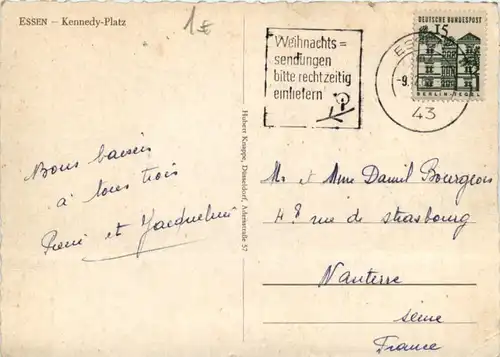 ESSEN – Kennedy-Platz
1 €
Weihnachts=
sendungen
bitte rechtzeitig
einliefern
DEUTSCHE BUNDESPOST
15
BERLIN-TEGEL
ES
-9.
43
Hubert Knuppe, Düsseldorf, Adersstraße 57
Bons baisers
à tous trois
et Jacqueline
Mr et Mme Daniel Bourgeois
48 rue de strasbourg
Nanterre
seine
France